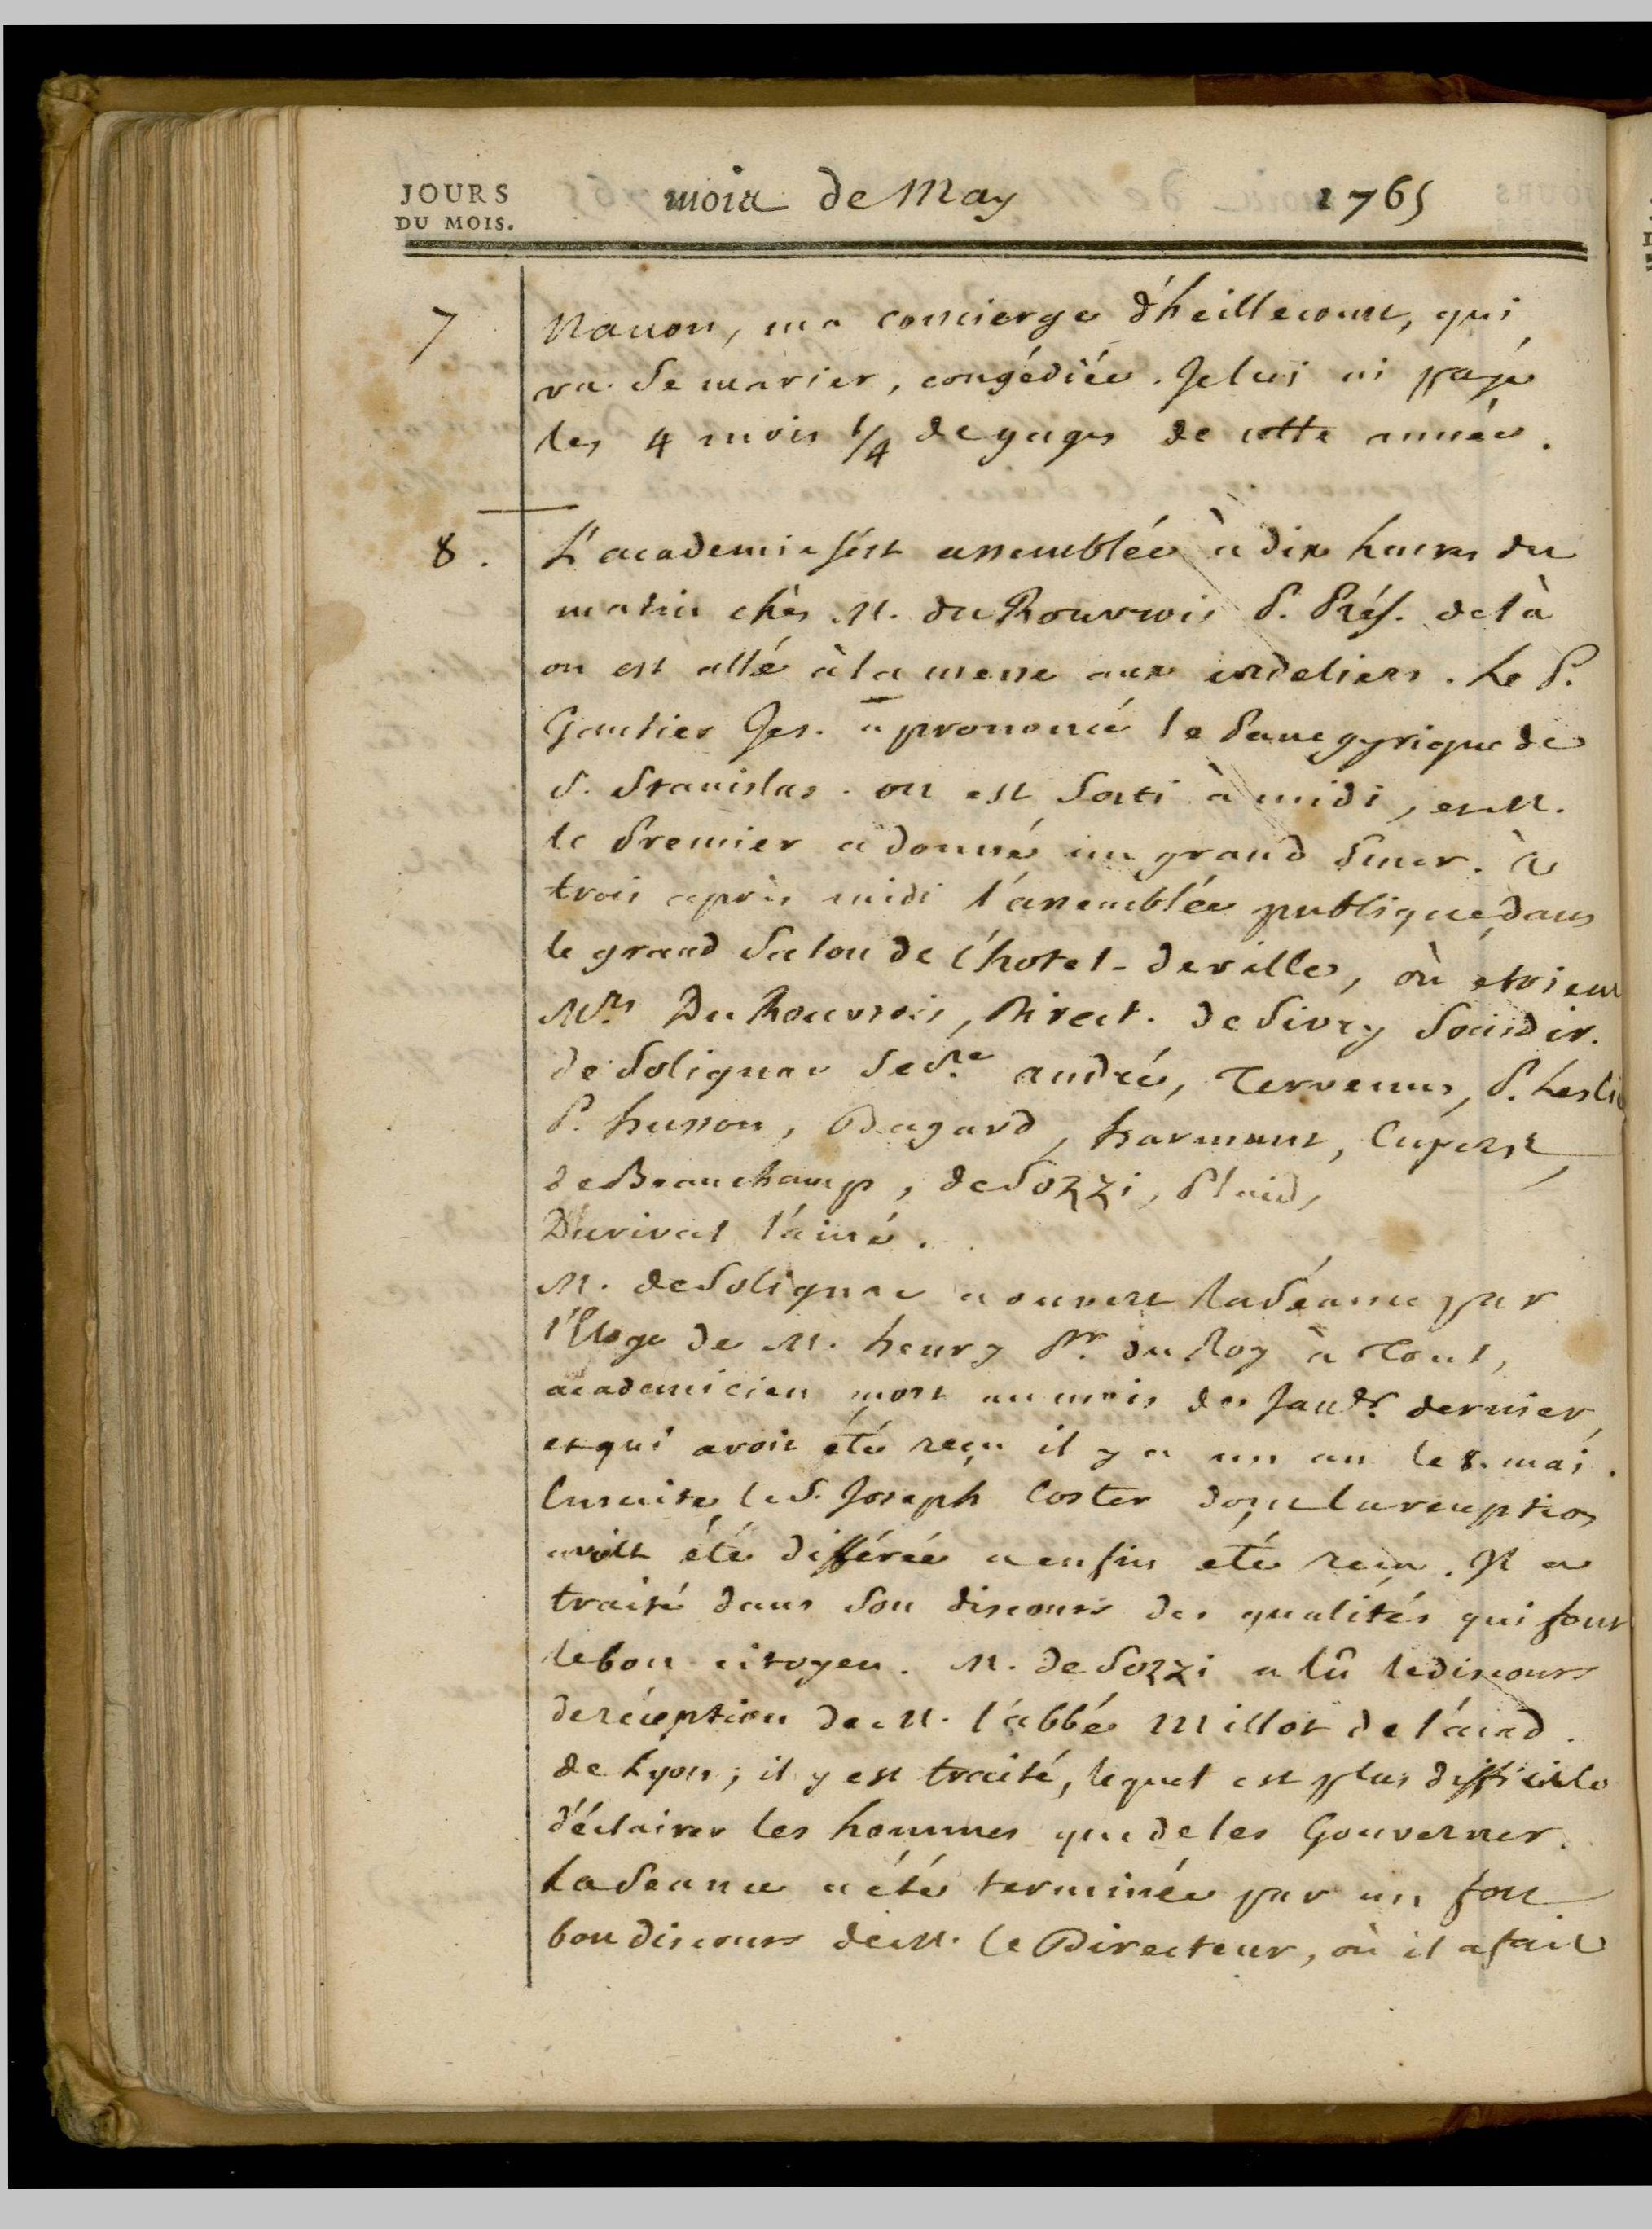 JOURS
DU MOIS.
mois de May 1765
7 Nanon, ma concierge d'heillecourt, qui
va se marier, congédiée. Je lui ai payé
les 4 mois 1/4 de gages de cette année.
8. L'academie s'est assemblée à dix heures du
matin chès M. du Rouvrois P. Prés. de là
on est allé à la messe aux cordeliers. Le P.
Gautier Jes. a prononcé le Panegyrique de
S. Stanislas. on est sorti à midi, et M.
le Premier a donné un grand diner. à
trois après midi l'assemblée publique, dans
le grand Salon de l'hotel-de ville, où etoient
Mrs. Du Rouvrois, Direct. de Sivry Sousdir.
de Solignac Secre. andré, Tervenus, P. Leslie
P. husson, Bagard, harmant, Cupers,
de Beauchamp, de Sozzi, Plaid,
Durival l'ainé.
M. de Solignac a ouvert la Séance par
l'Eloge de M. henry Pr. du Roy à Toul,
academicien mort au mois de Janvr. dernier,
et qui avoit été reçu il y a un an le 8. mai.
Ensuite, le S. Joseph Coster dont la reception
avoit été différée a enfin été reçu. Il a
traité dans son discours des qualités qui font
le bon citoyen. M. de Sozzi a lû le discours
de réception de M. l'abbé Millot de l'acad.
de Lyon; il y est traité, lequel est plus difficile
d'éclairer les hommes que de les Gouverner.
La Seance a été terminée par un fort
bon discours de M. le Directeur, où il a fait